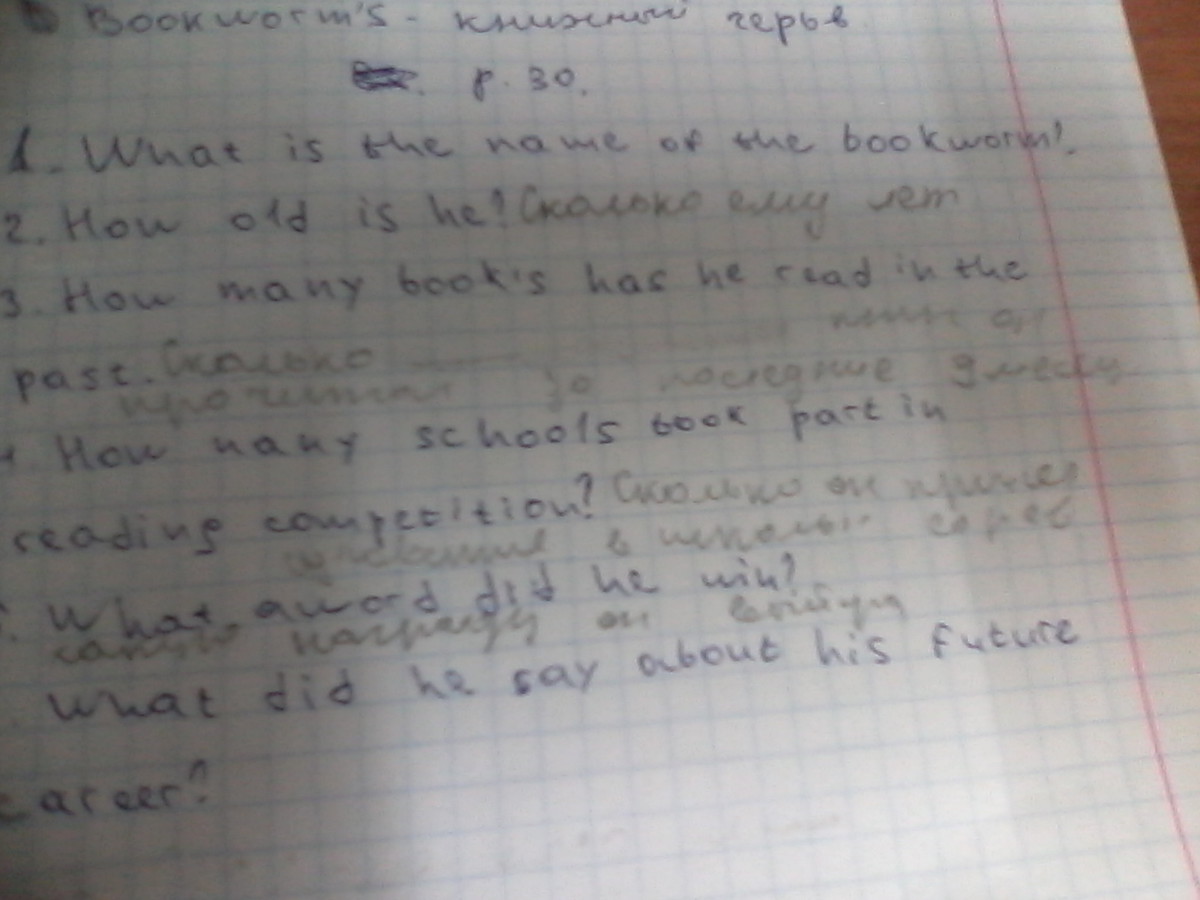 Bookworm's - книжный червь
p. 30.
1. What is the name of the bookworm?
2. How old is he? Сколько ему лет
3. How many book's has he read in the
past. Сколько
прочитал за последние 9 месяц
How many schools took part in
reading competition? Сколько он принял
в школьн
What award did he win?
какую награду он
What did he say about his future
career?